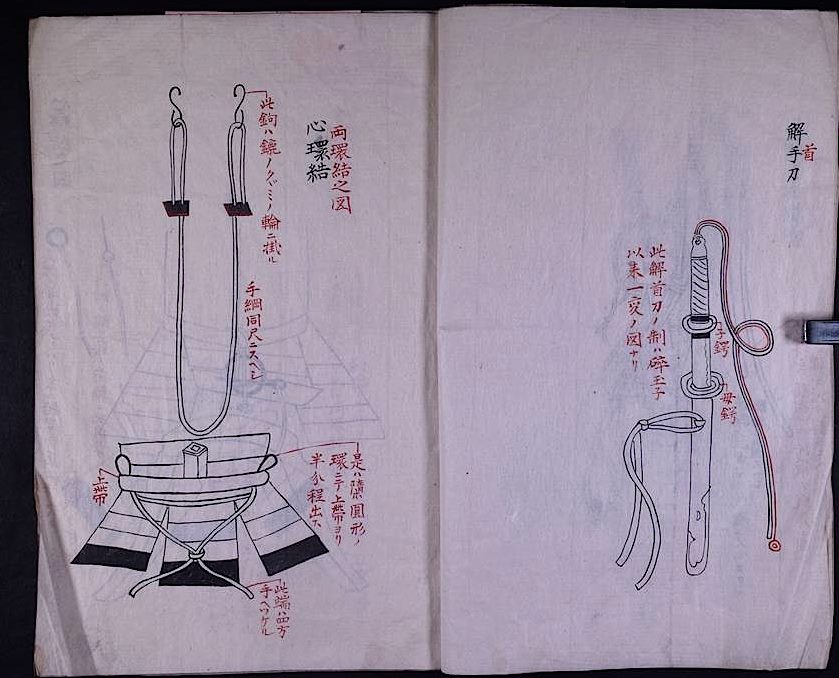 解手刀
首
此解首刀ノ制ハ碎玉子
以来一変ノ図ナリ
子鍔
母鍔
両環結之図
心環結
此鉤ハ鑣ノクヾミノ輪ニ掛ル
手綱同尺ニスヘシ
上帯
是ハ隋圓形ノ
環ニテ上帯ヨリ
半分程出ス
此端ハ四方
手ヘツケル